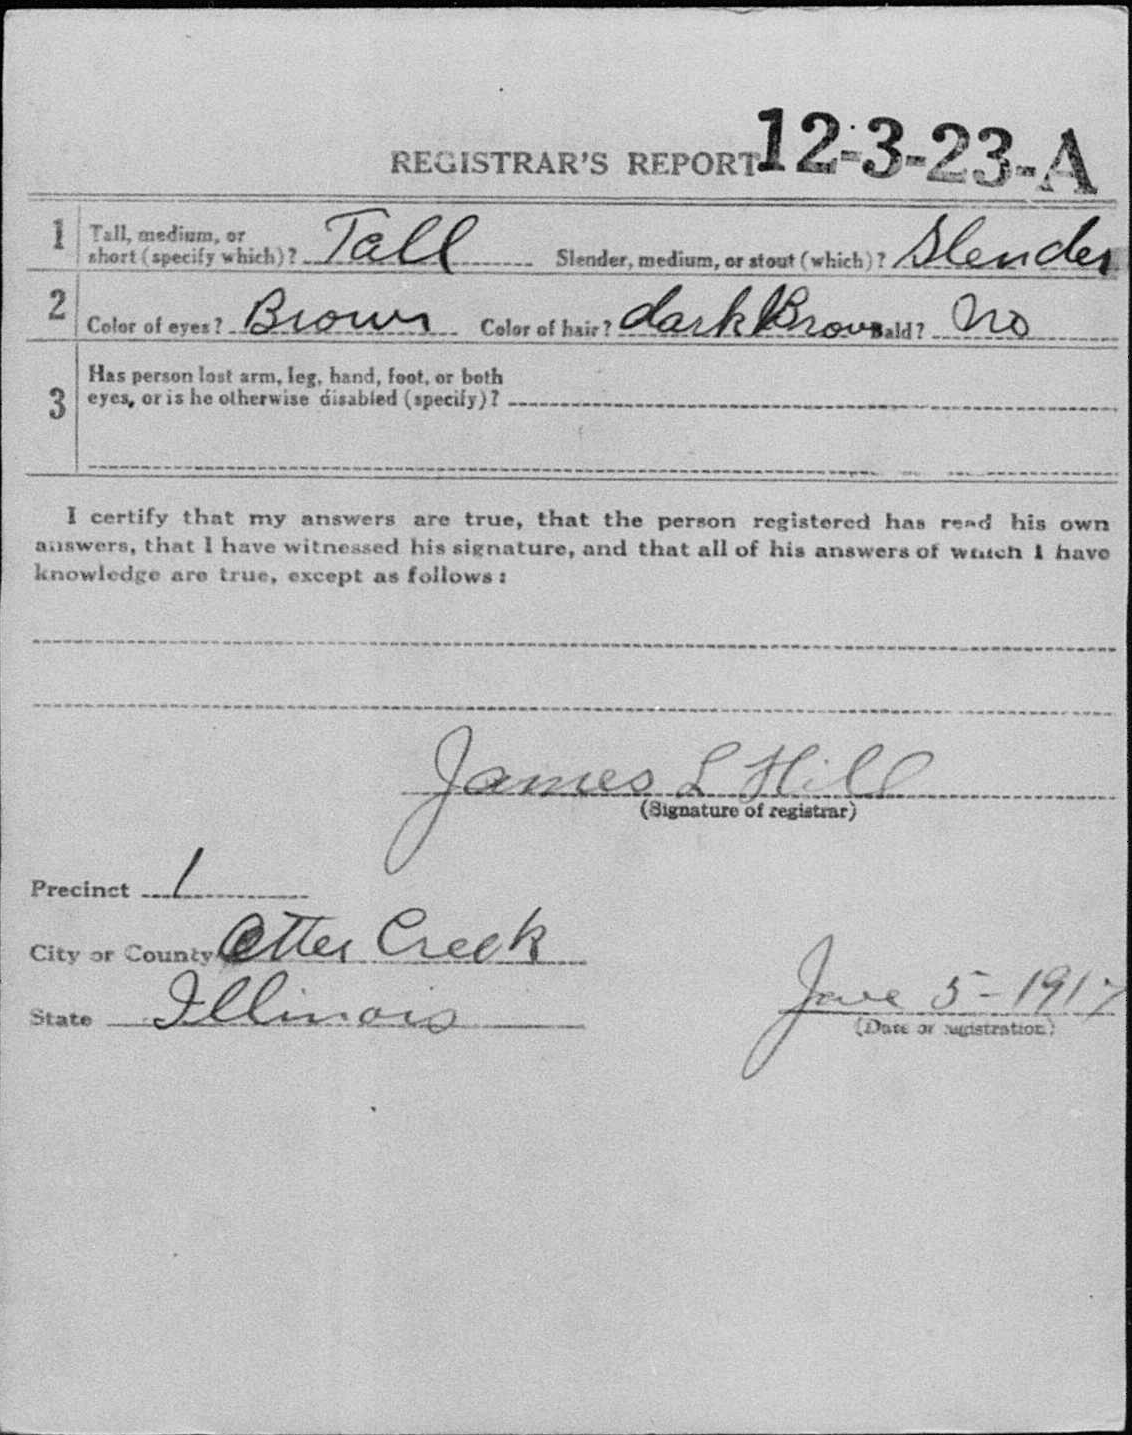 REGISTRAR'S REPORT 12-3-23-A
1 Tall, medium, or short (specify which)? Tall Slender, medium, or stout (which)? Slender
2 Color of eyes? Brown Color of hair? dark Brown Bald? No
3 Has person lost arm, leg, hand, foot, or both
eyes, or is he otherwise disabled (specify)?
I certify that my answers are true, that the person registered has read his own
answers, that I have witnessed his signature, and that all of his answers of which I have
knowledge are true, except as follows:
James L Hill
(Signature of registrar)
Precinct 1
City or County Otter Creek
State Illinois
June 5-1917
(Date of registration)